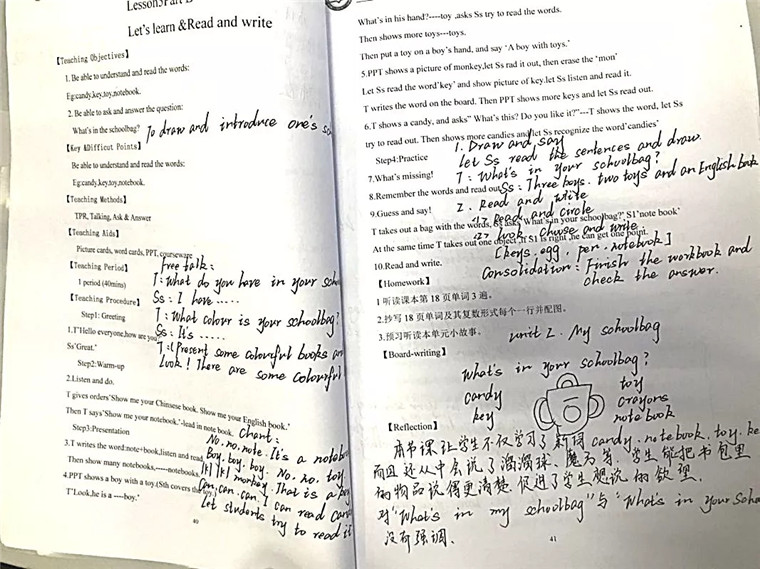 Lesson5Part B
Let's learn &Read and write
【Teaching Objectives】
1. Be able to understand and read the words:
Eg:candy,key,toy,notebook.
2. Be able to ask and answer the question:
What's in the schoolbag?
To draw and introduce one's
【Key &Difficut Points】
Be able to understand and read the words:
Eg:candy,key,toy,notebook.
【Teaching Methods】
TPR, Talking, Ask & Answer
【Teaching Aids】
Picture cards, word cards, PPT, courseware
【Teaching Period】
Free talk:
1 period (40mins)
T: What do you have in your
【Teaching Procedure】
Ss: I have .....
Step1: Greeting
T: What colour is your schoolbag?
1.T"Hello everyone,how are you
Ss: It's .....
Ss'Great.'
T: (Present some colourful books
Step2:Warm-up
Look! There are some colourful
2.Listen and do.
T gives orders'Show me your Chinese book. Show me your English book.'
Then T says'Show me your notebook.'-lead in note book.
Chant:
Step3:Presentation
No. no. note. It's a
3.T writes the word:note+book,listen and read
Boy. boy. boy. No. no. toy.
Then show many notebooks,-----notebook
monkey. That is a
4.PPT shows a boy with a toy.(Sth covers the toy
Can. can. can. I can read
T'Look,he is a ----boy.'
Let students try to read it
40
What's in his hand?----toy ,asks Ss try to read the words.
Then shows more toys---toys.
Then put a toy on a boy's hand, and say 'A boy with toys.'
5.PPT shows a picture of monkey,let Ss rad it out, then erase the 'mon'
Let Ss read the word'key' and show picture of key.let Ss listen and read it.
T writes the word on the board. Then PPT shows more keys and let Ss read out.
6.T shows a candy, and asks" What's this? Do you like it?"---T shows the word, let Ss
try to read out. Then shows more candies and let Ss recognize the word'candies'
1. Draw and say
Step4:Practice
let Ss read the sentences and draw.
7.What's missing!
T: What's in your schoolbag?
8.Remember the words and read out
Ss: Three boys. two toys and an English book
9.Guess and say!
2. Read and write
<1> Read and circle
T takes out a bag with the words, asks'What's in your schoolbag?' S1'note book'
<2> Look, choose and write.
At the same time T takes out one object ,If S1 is right ,he can get one point.
[keys. egg. pen. notebook]
10.Read and write.
Consolidation: Finish the workbook and
check the answer.
【Homework】
1 听读课本第 18 页单词 3 遍。
2.抄写 18 页单词及其复数形式每个一行并配图。
3.预习听读本单元小故事。
unit 2. My schoolbag
【Board-writing】
What's in your schoolbag?
candy toy
key crayons
notebook
【Reflection】
本节课让学生不仅学习了新词 candy. notebook. toy.
而且还从中会说了溜溜球、魔方等。学生能把书包里
的物品说得更清楚，促进了学生想说的欲望.
对"What's in my schoolbag"与"What's in your
没有强调.
41